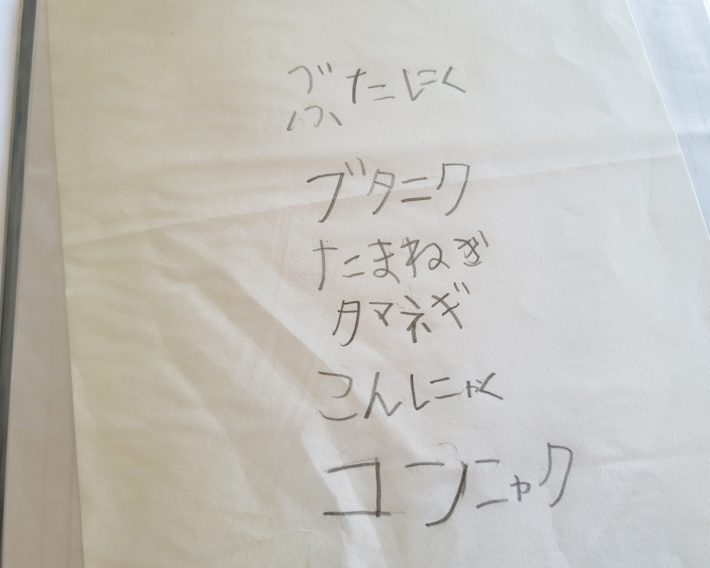 ぶたにく
ブタニク
たまねぎ
タマネギ
こんにゃく
コンニャク